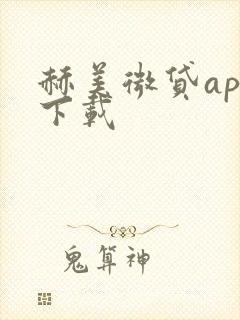 赫美微贷ap
下载
鬼算神